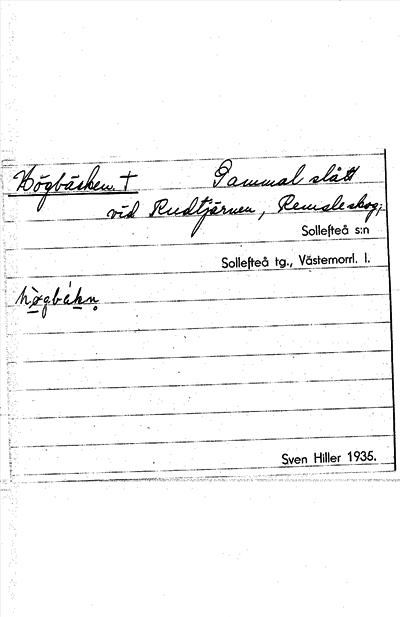 Högbäcken. † Gammal slått
vid Rudtjärnen, Remsleskog,
Sollefteå s:n
Sollefteå tg., Västernorrl. l.
hø̀gbákn̥
Sven Hiller 1935.